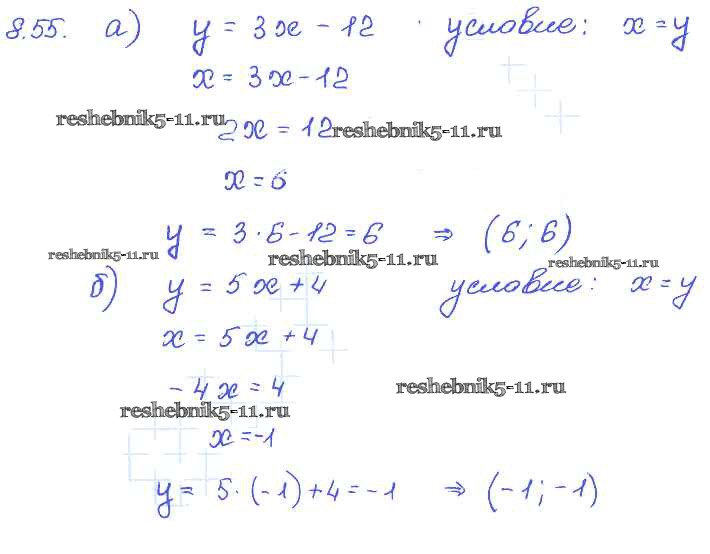 8.55. а) y = 3x - 12 условие: x = y
x = 3x - 12
reshebnik5-11.ru
2x = 12 reshebnik5-11.ru
x = 6
y = 3 · 6 - 12 = 6 ⇒ (6; 6)
reshebnik5-11.ru reshebnik5-11.ru reshebnik5-11.ru
б) y = 5x + 4 условие: x = y
x = 5x + 4
- 4x = 4 reshebnik5-11.ru
reshebnik5-11.ru
x = -1
y = 5 · (-1) + 4 = -1 ⇒ (-1; -1)